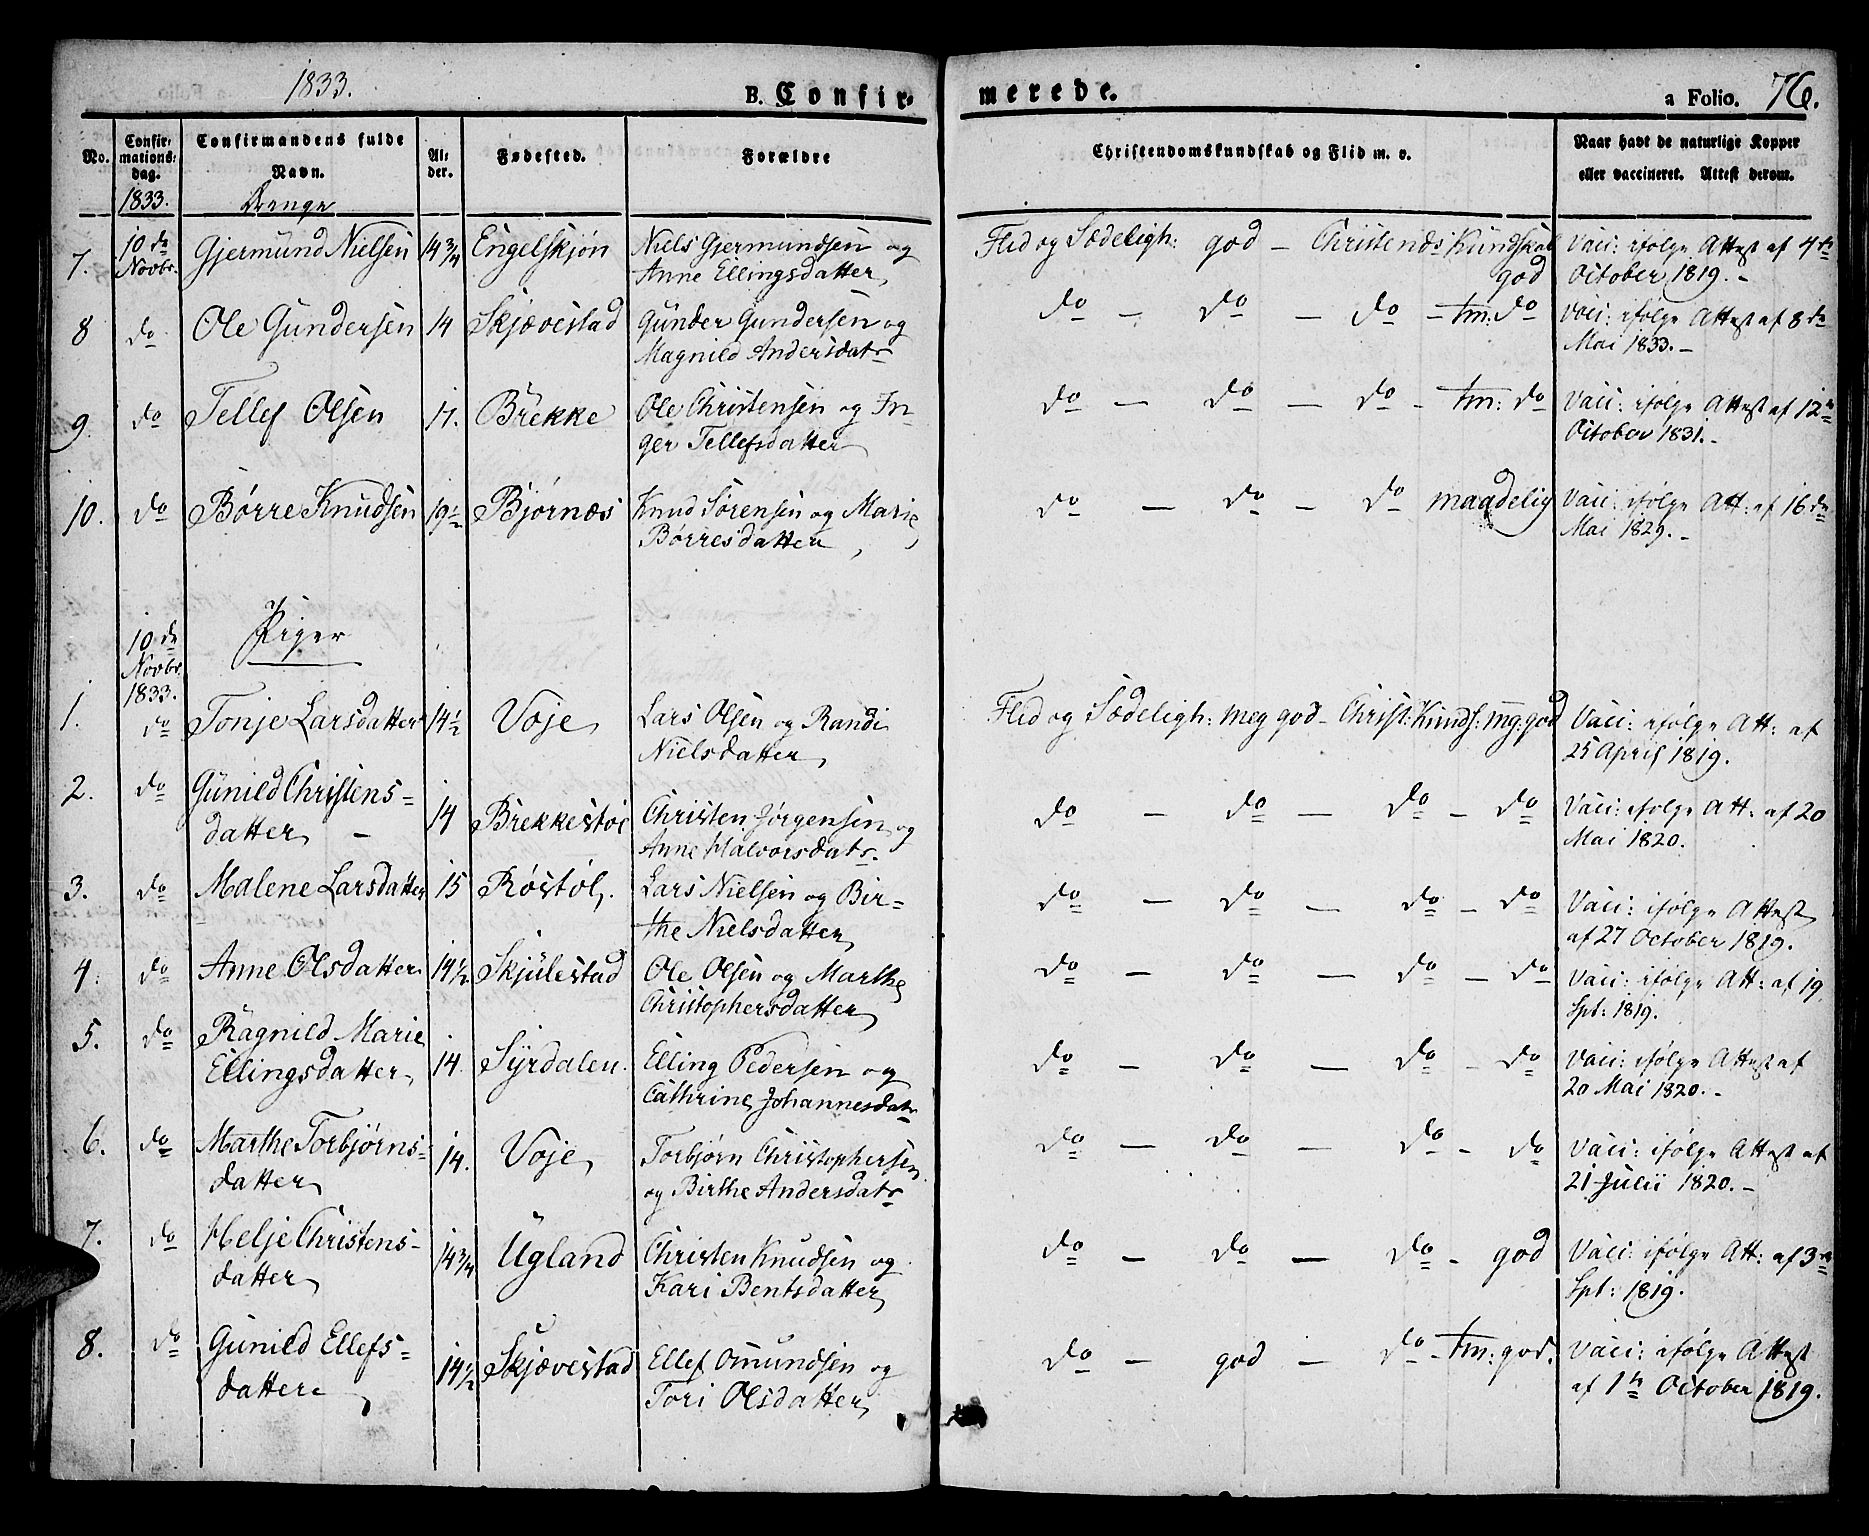 1833.
B. Confir-
merede.
a Folio. 76.
No.
Confir-
mations-
dag.
Confirmandens fulde
Navn.
Al-
der.
Fødested.
Forældre
Christendomskundskab og Flid m. v.
Naar havt de naturlige Kopper
eller vaccineret. Attest derom.
1833. Drenge
7. 10de Novbr. Gjermund Nielsen 14 3/4 Engelskjøn Niels Gjermundsen og
Anne Ellingsdatter
Flid og Sædeligh: god — Christends Kundskab
god
Vaci: ifølge Attest af 4de
October 1819. –
8 do Ole Gundersen 14 Skjævestad Gunder Gundersen og
Magnild Andersdatr
do — do — do – tm: do
Vaci: ifølge Attest af 8de
Mai 1833. –
9. do Tellef Olsen 17. Brekke Ole Christensen og In-
ger Tellefsdatter
do — do — do – tm: do
Vaci: ifølge Attest af 12te
October 1831. –
10. do Børre Knudsen 19 1/2 Bjørnæs Knud Sørensen og Marie
Børresdatter
do — do – do maadelig
Vaci: ifølge Att: af 16de
Mai 1829. –
10de
Novbr.
1833.
Piger
1. do Tonje Larsdatter 14 1/2 Voje Lars Olsen og Randi
Nielsdatter
Flid og Sædeligh: meg god – Christ: Kunds: mg: god
Vaci: ifølge Att: af
25 April 1819.
2. do Gunild Christens-
datter – 14 Brekkestøl Christen Jørgensen og
Anne Halvorsdatr.
do — do — do – do
Vaci: ifølge Att: af 20
Mai 1820.
3. do Malene Larsdatter 15 Røstøl. Lars Nielsen og Bir-
the Nielsdatter
do — do — do – do
Vaci: ifølge Attest
af 27 October 1819.
4. do Anne Olsdatter 14 1/2 Skjulestad Ole Olsen og Marthe
Christophersdatter
do — do — do – do
Vaci: ifølge Att: af 19
Spt: 1819.
5. do Ragnild Marie
Ellingsdatter 14. Syrdalen. Elling Pedersen og
Cathrine Johannesdatr
do — do — do – do
Vaci: ifølge Attest af
20 Mai 1820. –
6. do Marthe Torbjørns-
datter 14. Voje Torbjørn Christophersen
og Birthe Andersdatr
do — do — do – do
Vaci: ifølge Attest af
21 Julii 1820. –
7. do Helje Christens-
datter 14 3/4 Ugland Christen Knudsen og
Kari Bentsdatter
do — do — do – god
Vaci: ifølge Att: af 3de
Spt: 1819.
8. do Gunild Ellefs-
datter 14 1/2 Skjævestad Ellef Omundsen og
Tori Olsdatter
do — god — do – tm: god.
Vaci: ifølge Attest
af 1te October 1819.